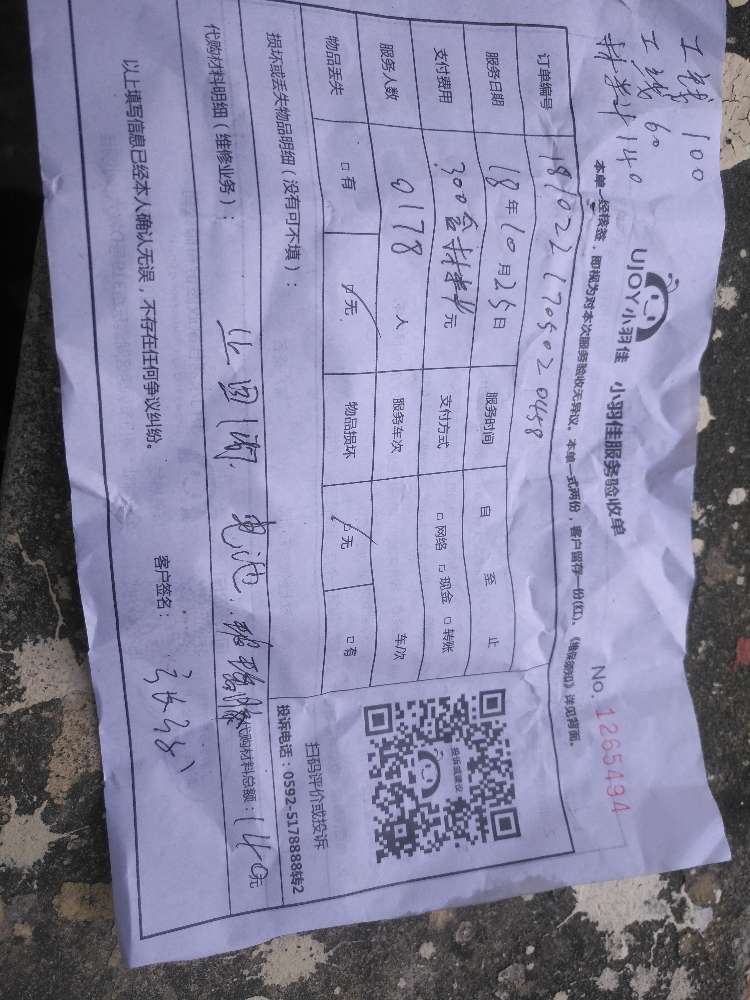 工钱 100
工钱 60
材料 140
UJOY小羽佳 小羽佳服务验收单
No. 1265494
本单一经核签，即视为对本次服务验收无异议。本单一式两份，客户留存一份(红)。《维保须知》详见背面。
订单编号 1810221705020458
服务日期 18年10月25日 服务时间 自 至 止
支付费用 300含材料元 支付方式 □网络 □现金 □转账
服务人数 0178人 服务车次 车/次
物品丢失 □有 □无 物品损坏 □无 □有
损坏或丢失物品明细（没有可不填）：
扫码评价或投诉
投诉电话：0592-5178888转2
代购材料明细（维修业务）： 止回阀 电池 代购材料总额：140元
以上填写信息已经本人确认无误，不存在任何争议纠纷。 客户签名：